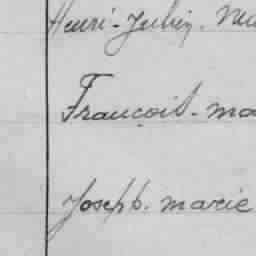 Henri-Julien.
François-ma
Joseph-marie